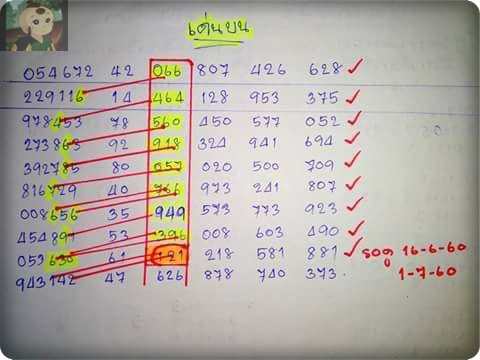 เด่นบน
054672 42 066 807 426 628 ✓
229116 14 464 128 953 375 ✓
978453 78 560 450 577 052 ✓
273863 92 918 324 941 694 ✓
392785 80 057 020 500 709 ✓
816729 40 766 973 241 807 ✓
008656 35 949 573 773 923 ✓
454891 53 396 008 603 490 ✓
053635 61 121 218 581 881 ✓ รอดู 16-6-60
943142 47 626 878 740 373. 1-7-60